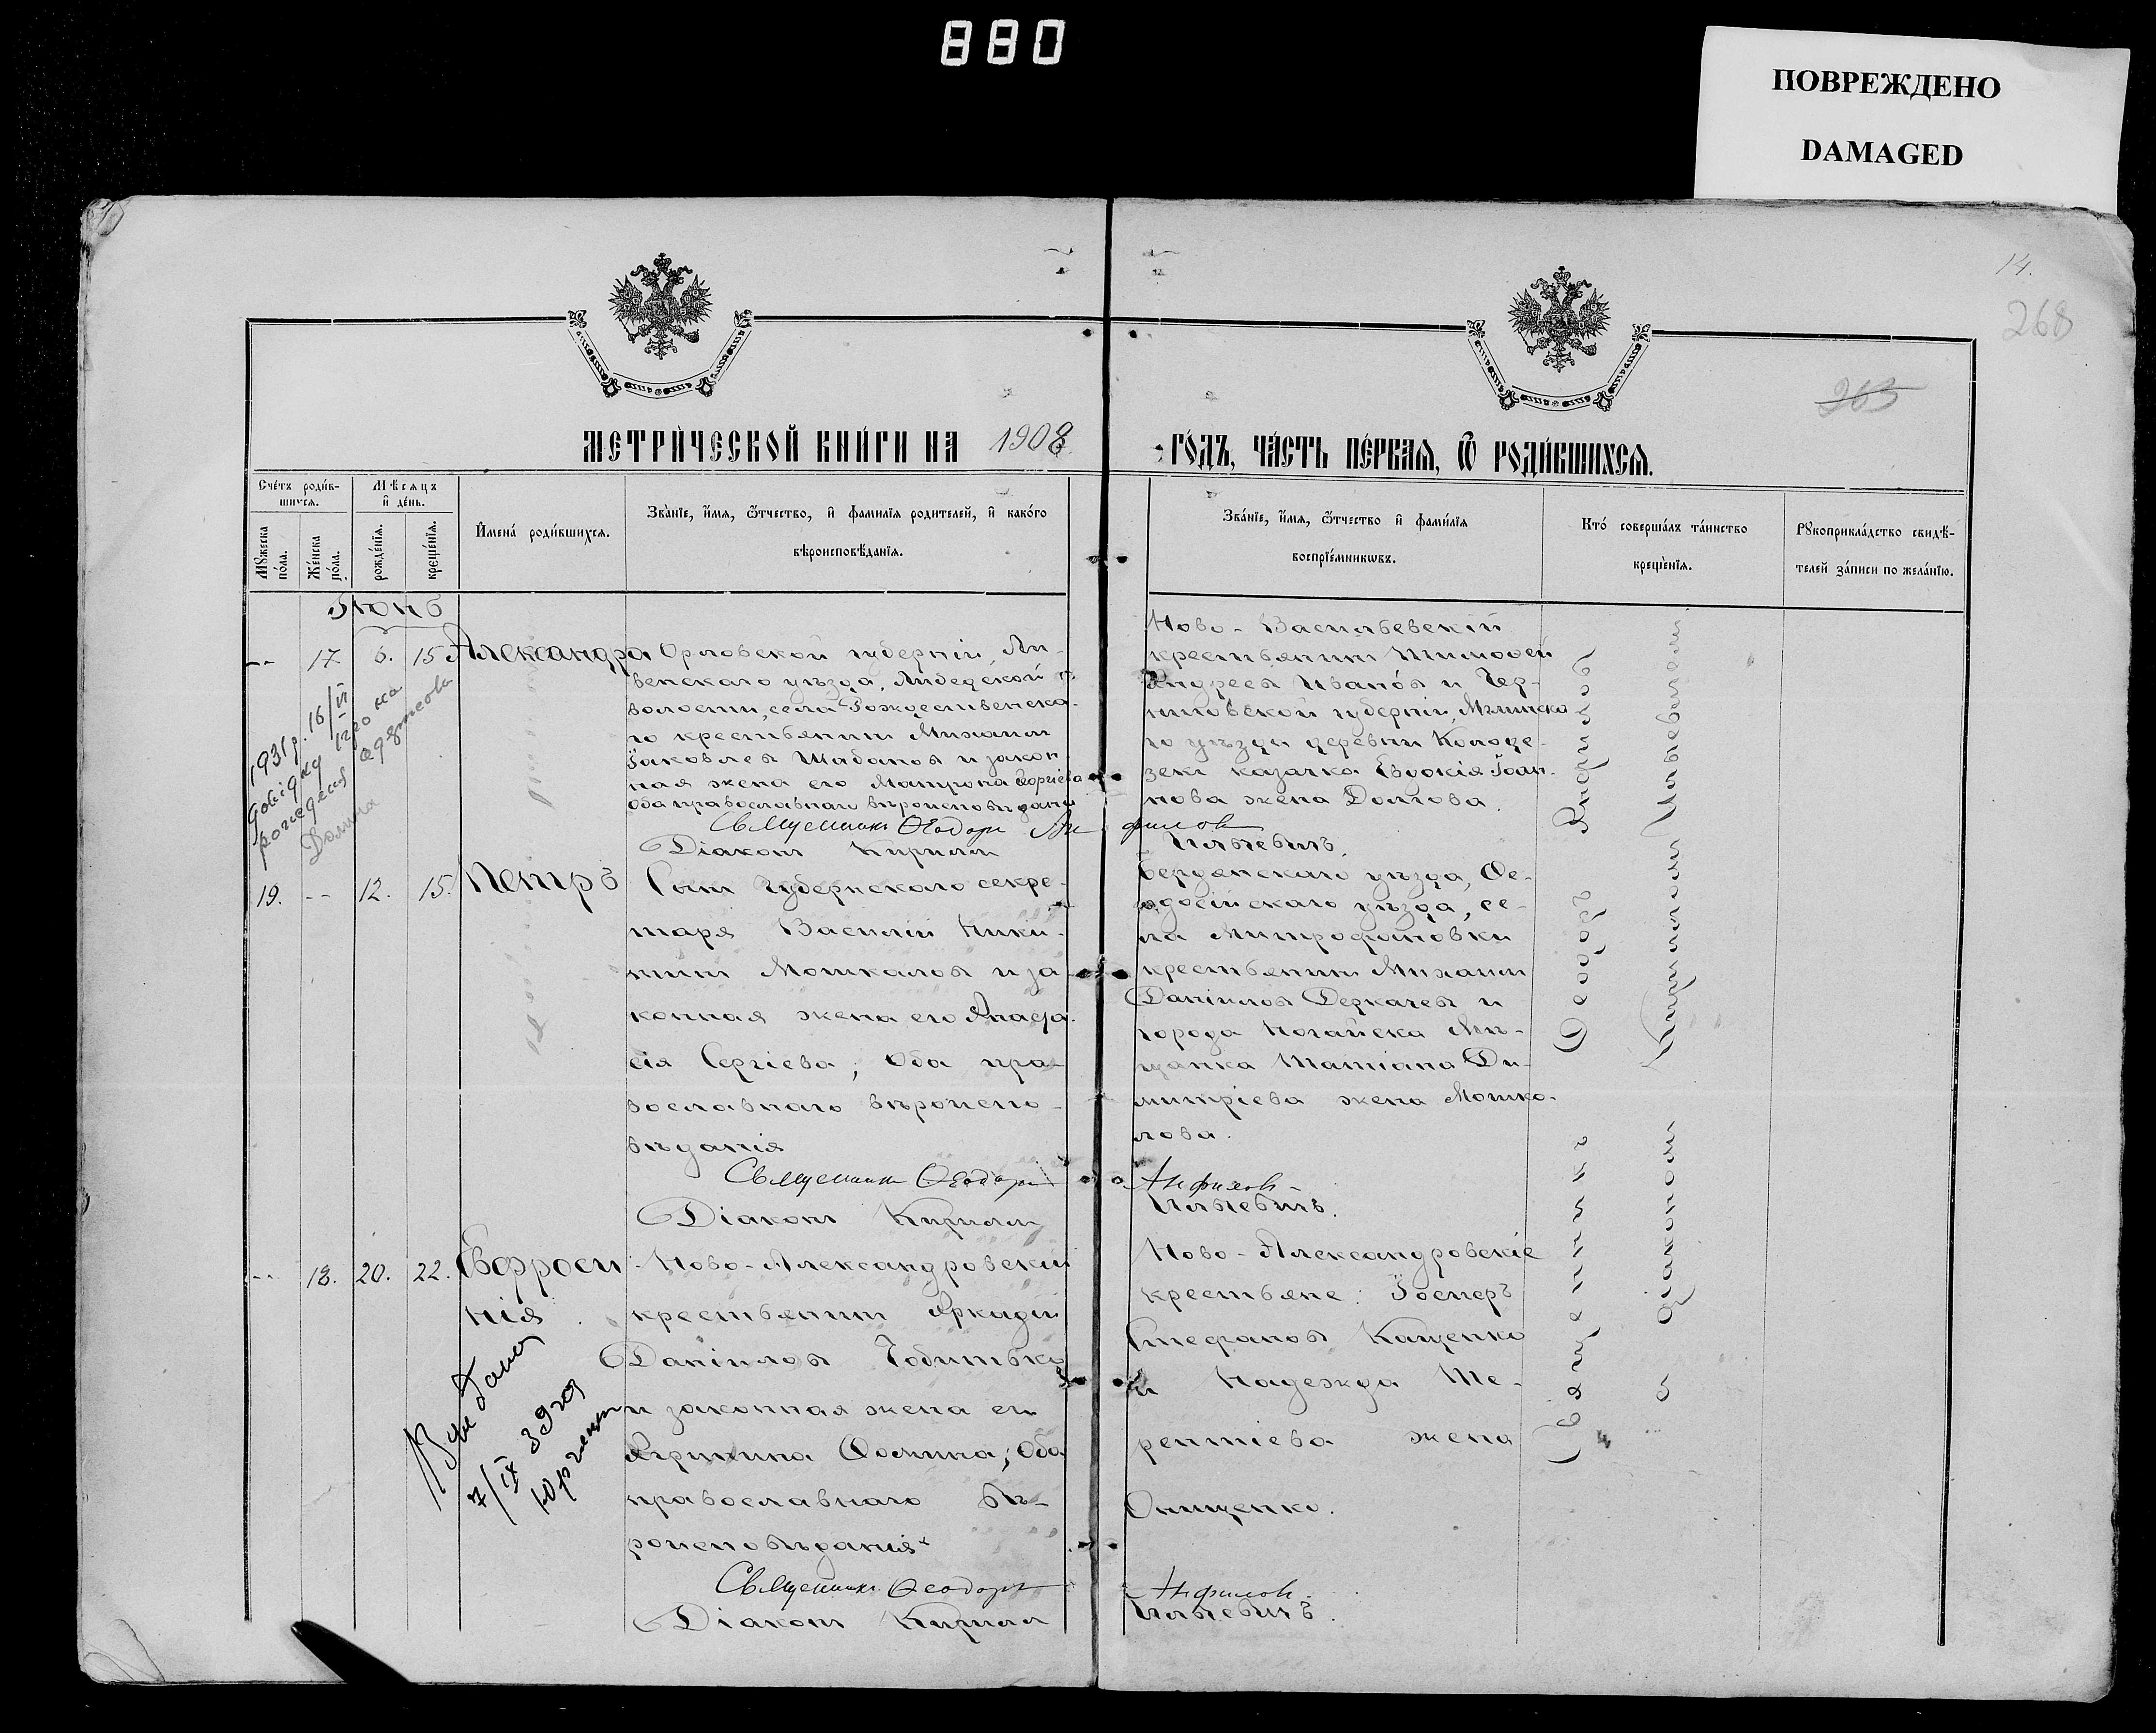 880
ПОВРЕЖДЕНО
DAMAGED
14.
268
265
МЕТРИ́ЧЕСКОЙ КНИ́ГИ НА 1908
ГО́ДЪ, ЧА́СТЬ ПЕ́РВАЯ, Ѽ РОДИ́ВШИХСЯ.
Сче́тъ роди́в-
шихся.
Мѣсяцъ
и҆ де́нь.
Мꙋ́жеска
по́ла.
Же́нска
по́ла.
рожде́нїя.
креще́нїя.
И҆мена́ роди́вшихся.
Зва́нїе, и҆́мя, ѻ҆́тчество, и҆ фамилїя родителей, и҆ како́го
вѣроисповѣ́данїя.
Зва́нїе, и҆́мя, ѻ҆́тчество и҆ фами́лїя
воспрїе́мникωвъ.
Кто́ соверша́лъ та́инство
креще́нїя.
Рꙋкоприкла́дство свидѣ́-
телей за́писи по жела́нїю.
Іюнь
--
17.
6.
15.
Александра
Орловской губерніи, Ли-
венскаго уѣзда,
волости, села Рождественска-
го крестьянинъ Михаилъ
Іаковлевъ Шабановъ и закон
ная жена его Матрона Георгіева
Оба православнаго вѣроисповѣданія
Священникъ Ѳеодоръ Ан
Діаконъ Кириллъ
Ново-Васильевскій
крестьянинъ Тимоѳей
Андреевъ Ивановъ и Чер-
ниговской губерніи, Мглинска
го уѣзда деревни Колоде-
зекъ казачка Евдокія Іоан-
нова жена Долгова.
филовъ
Ильяшевичъ.
1931 р. 16/VI
довідку про на
родження
19.
--
12.
15.
Петръ
Сынъ Губернскаго секре-
таря Василій Ники-
тинъ Мошкаловъ и за-
конная жена его Анаста-
сія Сергіева; Оба пра-
вославнаго вѣроиспо-
вѣданія
Священникъ Ѳеодоръ
Діаконъ Кириллъ
Бердянскаго уѣзда, Ѳе-
одосійскаго уѣзда, се-
ла Митрофановки
крестьянинъ Михаилъ
Даніиловъ Деркачевъ и
города Ногайска Мѣ-
щанка Татіана Ди-
митріева жена Мошка-
лова.
Анфиловъ
Ильяшевичъ.
--
18.
20.
22.
Евфроси
нія.
Ново-Александровскій
крестьянинъ Аркадій
Даніиловъ
и законная жена его
Агрипина Ѳомина; Оба
православнаго вѣ-
роисповѣданія
Священникъ Ѳеодоръ
Діаконъ Кириллъ
Ново-Александровскіе
крестьяне:
Стефановъ Кащенко
и Надежда Те-
рентіева жена
Онищенко.
Анфиловъ
Ильяшевичъ.
7/IX 39 год
Священникъ Ѳеодоръ Анфиловъ
съ діакономъ Кирилломъ